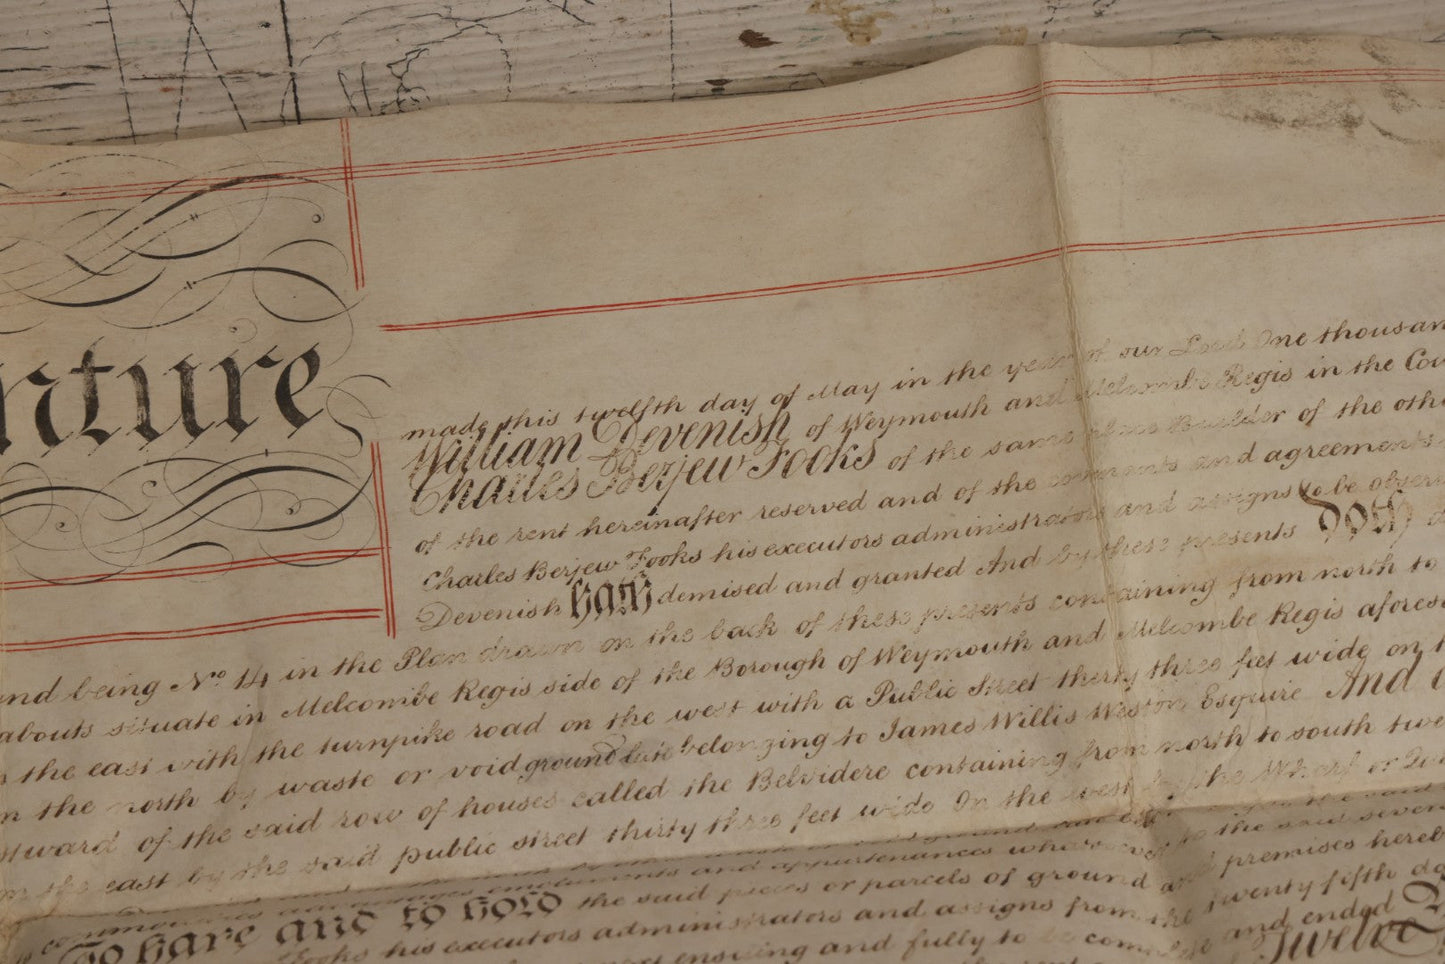 nture
made this twelfth day of May in the year of our Lord One thousan
William Devenish of Weymouth and Melcombe Regis in the Cou
Charles Berjew Fooks of the same place Builder of the othe
of the rent hereinafter reserved and of the covenants and agreements
Charles Berjew Fooks his executors administrators and assigns to be observ
Devenish hath demised and granted And by these presents doth
and being No. 14 in the Plan drawn on the back of these presents containing from north to
abouts situate in Melcombe Regis side of the Borough of Weymouth and Melcombe Regis aforesa
the east with the turnpike road on the west with a Public Street thirty three feet wide on t
n the north by waste or void ground late belonging to James Willis Weston Esquire And
stward of the said row of houses called the Belvidere containing from north to south twe
the east by the said public street thirty three feet wide On the west by the Wharf or
emoluments and appurtenances whatsoever to the said
To have and to hold the said pieces or parcels of ground and premises hereb
Fooks his executors administrators and assigns from the twenty fifth da
ensuing and fully to be complete and ended
Twelve